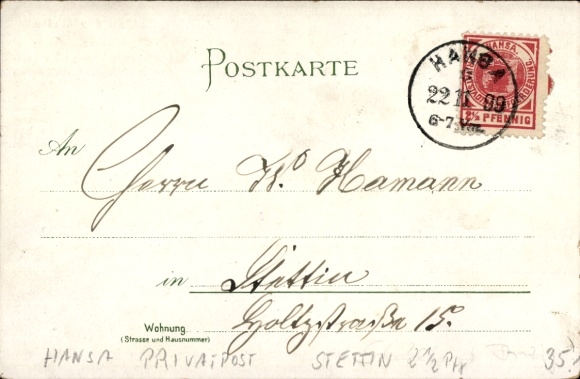 POSTKARTE
HANSA
2½ PFENNIG
HANSA
22 11 99
6-7
An
Herrn W. Hamann
in Stettin
Wohnung
(Strasse und Hausnummer)
Holtzstraße 15.
HANSA PRIVATPOST STETTIN 2½ Pfg 35.-